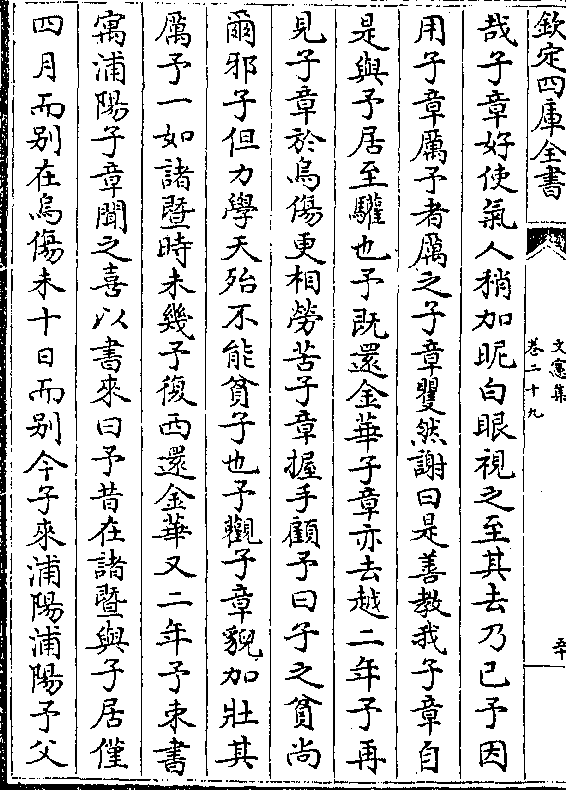 欽定四庫全書
文憲集
卷二十九
哉子章好使氣人稍加眤白眼視之至其去乃已予因
用子章厲予者厲之子章矍然謝曰是善教我子章自
是與予居至驩也予既還金華子章亦去越二年予再
見子章於烏傷更相勞苦子章握手顧予曰子之貧尚
爾邪子但力學天殆不能貧子也予觀子章貌加壯其
厲予一如諸暨時未幾予復西還金華又二年予束書
寓浦陽子章聞之喜以書來曰予昔在諸暨與子居僅
四月而别在烏傷未十日而别今子來浦陽浦陽予父